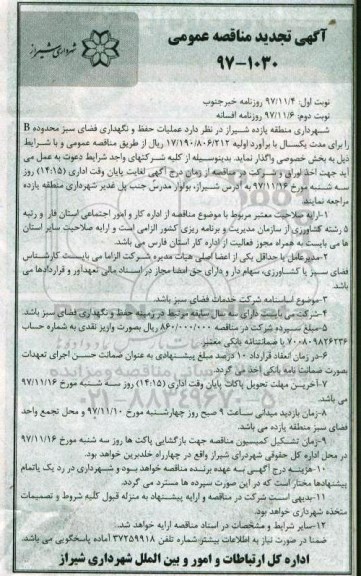 آگهی تجدید مناقصه عمومی
۹۷-۱۰۳۰
شهرداری شیراز
نوبت اول: ۹۷/۱۱/۴ روزنامه خبرجنوب
نوبت دوم: ۹۷/۱۱/۶ روزنامه افسانه
شهرداری منطقه یازده شیراز در نظر دارد عملیات حفظ و نگهداری فضای سبز محدوده B
را برای مدت یکسال با برآورد اولیه ۱۷/۱۹۰/۸۰۶/۲۱۲ ریال از طریق مناقصه عمومی و با شرایط
ذیل به بخش خصوصی واگذار نماید. بدینوسیله از کلیه شرکتهای واجد شرایط دعوت به عمل می
آید جهت اخذ اوراق و شرکت در مناقصه از زمان درج آگهی لغایت پایان وقت اداری (۱۴:۱۵) روز
سه شنبه مورخ ۹۷/۱۱/۱۶ به آدرس شیراز، بولوار مدرس جنب پل غدیر شهرداری منطقه یازده
مراجعه نمایند.
۱-ارایه صلاحیت معتبر مربوط با موضوع مناقصه از اداره کار و امور اجتماعی استان فارس و رتبه
۵ رشته کشاورزی از سازمان مدیریت و برنامه ریزی کشور الزامی است و ارایه صلاحیت سایر استان
ها می بایست به همراه مجوز فعالیت از اداره کار استان فارس می باشد.
۲-مدیرعامل یا حداقل یکی از اعضا اصلی هیات مدیره شرکت الزاما می بایست کارشناس
فضای سبز یا کشاورزی، سهام دار و دارای حق امضا مجاز در اسناد مالی تعهدآور و قراردادها می
باشد.
۳-موضوع اساسنامه شرکت خدمات فضای سبز باشد.
۴-شرکت می بایست دارای سه سال سابقه مرتبط در زمینه حفظ و نگهداری فضای سبز باشد.
۵-مبلغ سپرده شرکت در مناقصه ۸۶۰/۰۰۰/۰۰۰ ریال بصورت واریز نقدی به شماره حساب
۷۰۰۸۰۹۸۲۶۲۳۶ یا ضمانتنامه بانکی معتبر.
۶-در زمان انعقاد قرارداد ۱۰ درصد مبلغ پیشنهادی به عنوان ضمانت حسن اجرای تعهدات
بصورت ضمانت نامه بانکی اخذ می گردد.
۷-آخرین مهلت تحویل پاکات پایان وقت اداری (۱۴:۱۵) روز سه شنبه مورخ ۹۷/۱۱/۱۶
می باشد.
۸-زمان بازدید میدانی ساعت ۹ صبح روز چهارشنبه مورخ ۹۷/۱۱/۱۰ و محل تجمع واحد
فضای سبز منطقه یازده می باشد.
۹-زمان تشکیل کمیسیون مناقصه جهت بازگشایی پاکت ها روز سه شنبه مورخ ۹۷/۱۱/۱۶
در محل اداره کل حقوقی شهرداری شیراز واقع در چهارراه خلدبرین خواهد بود.
۱۰-هزینه درج آگهی به عهده برنده مناقصه خواهد بود و شهرداری در رد یک یاتمام
پیشنهادها مختار است که در این صورت سپرده ها مسترد می گردد.
۱۱-بدیهی است شرکت در مناقصه و ارایه پیشنهاد به منزله قبول کلیه شروط و تصمیمات
متخذه شهرداری خواهد بود.
۱۲-سایر شرایط و مشخصات در اسناد مناقصه ارایه خواهد شد.
ضمنا در صورت نیاز به اطلاعات بیشتر شماره تلفن ۳۷۲۵۹۹۱۸ آماده پاسخگویی می باشد.
اداره کل ارتباطات و امور و بین الملل شهرداری شیراز